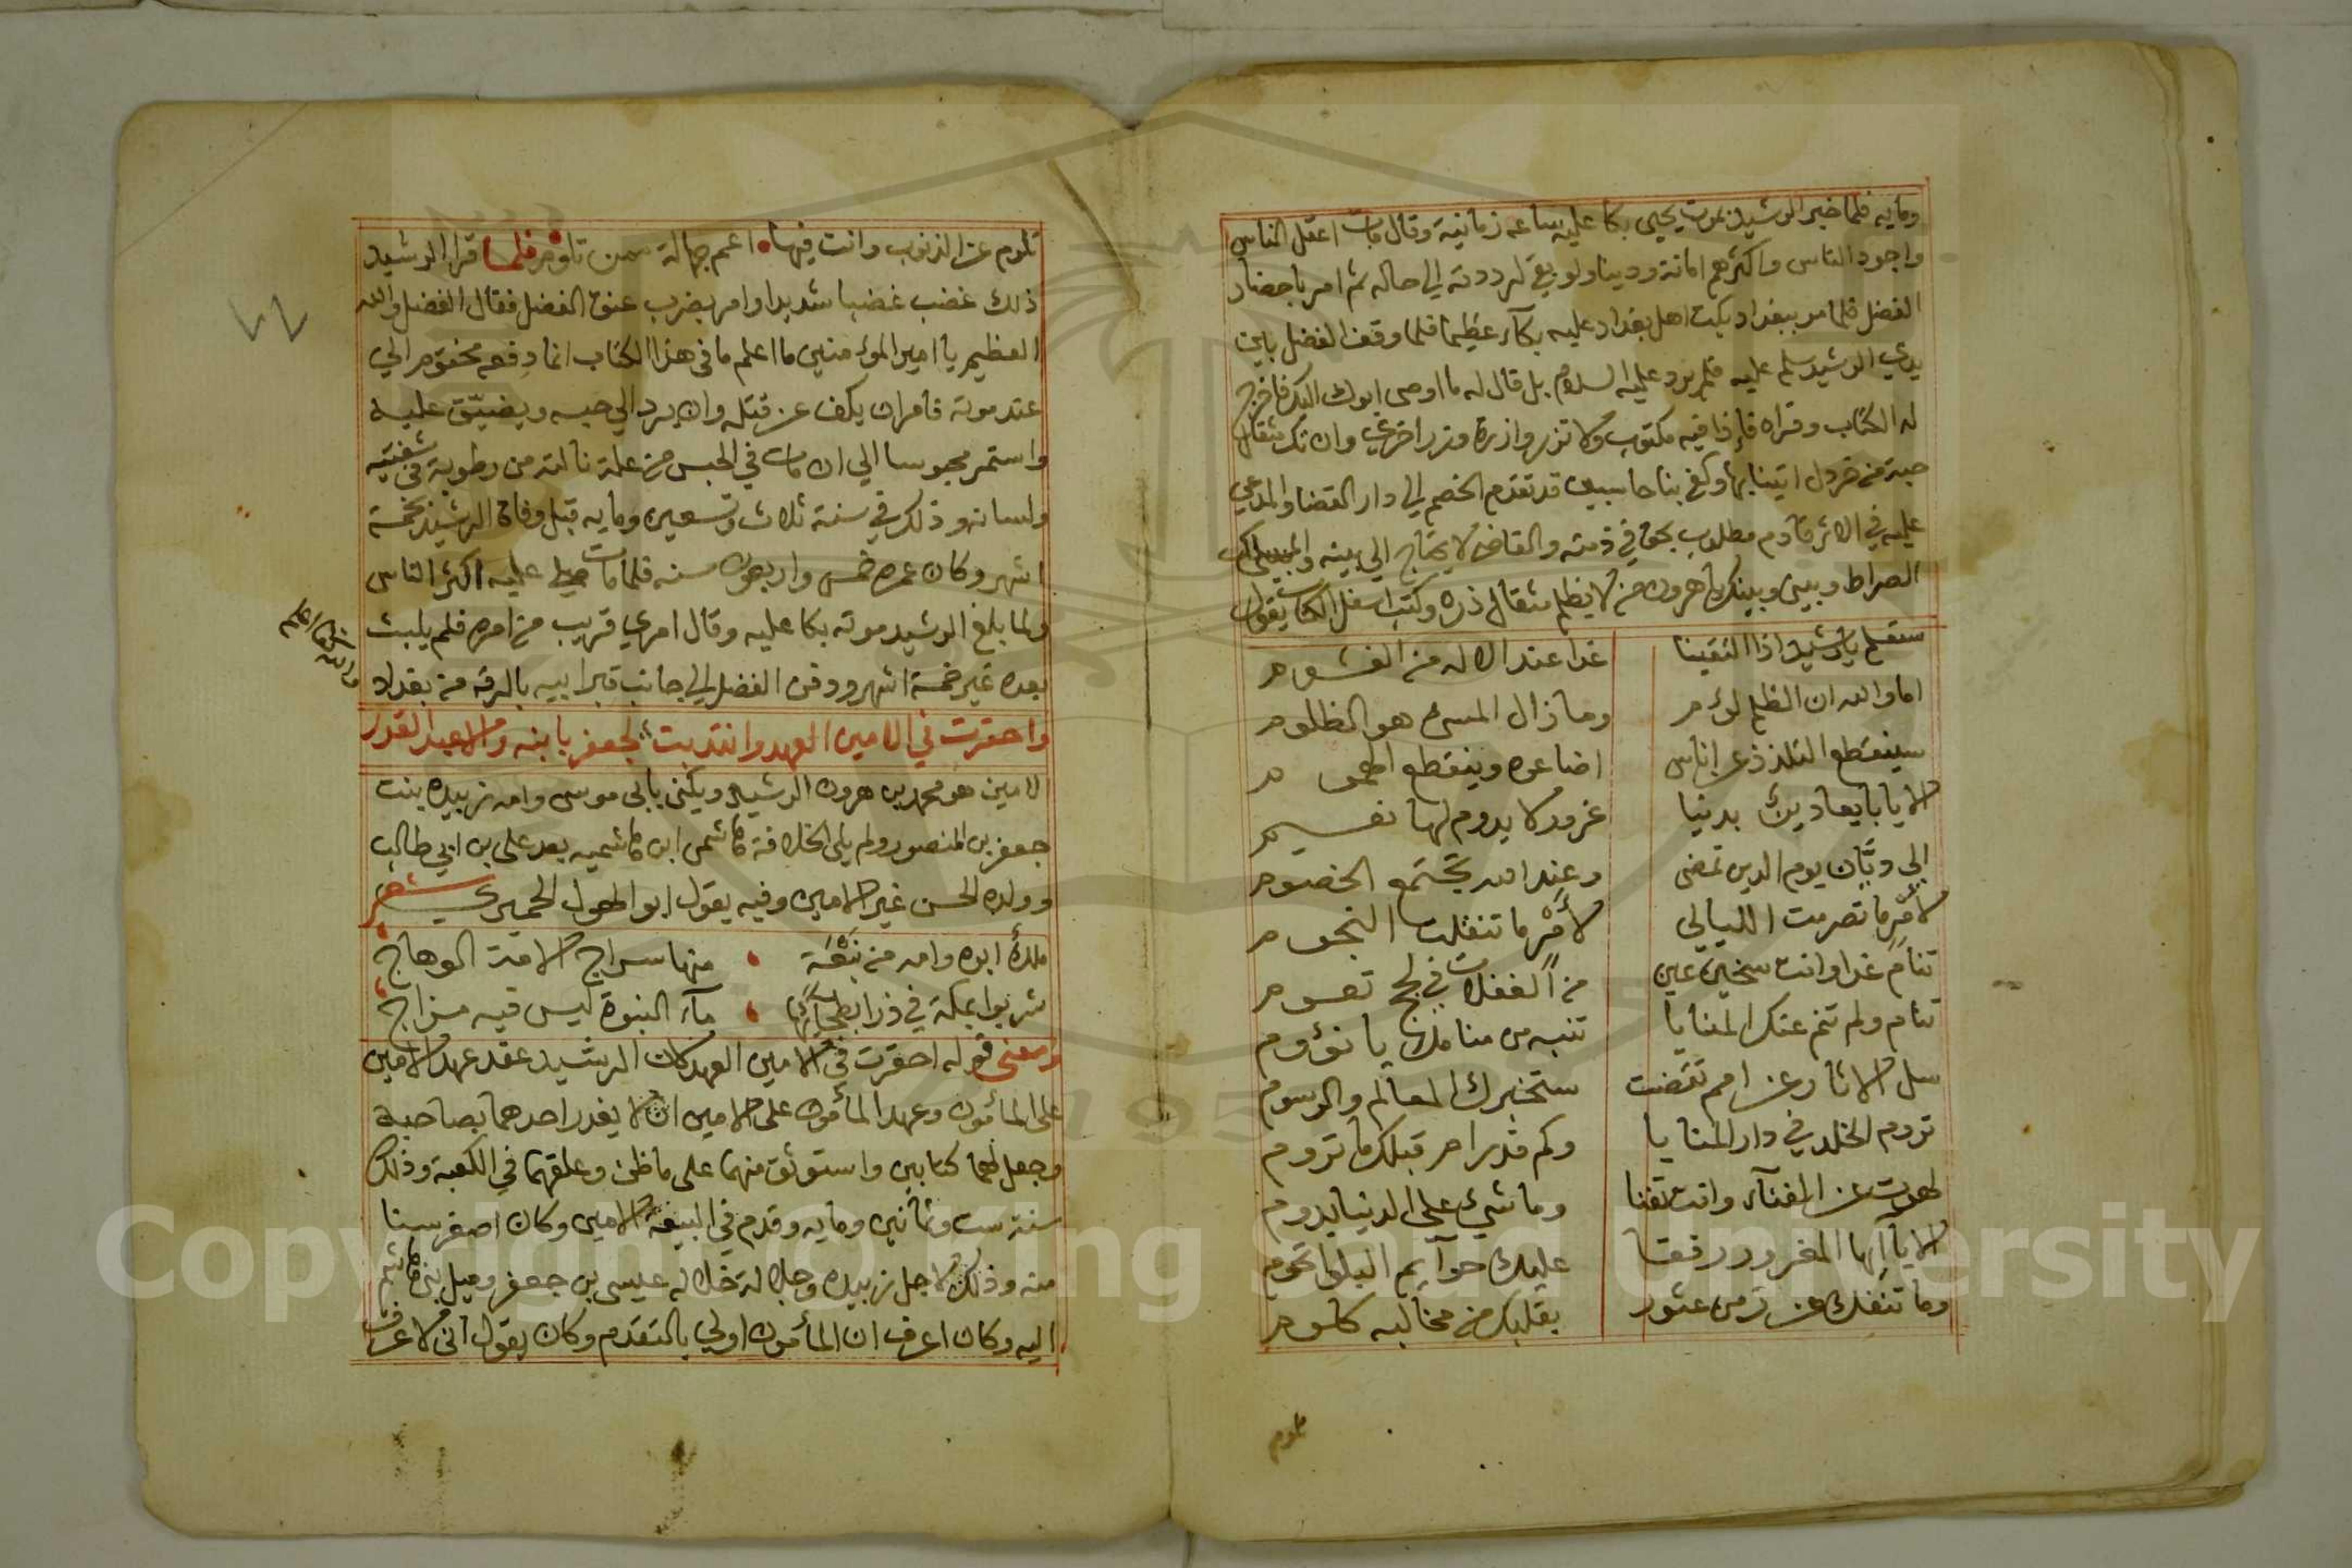 ومايه فلما خبر الرشيد بموت يحيى بكا عليه ساعه زمانية وقال مات اعقل الناس
واجود الناس واكثرهم امانة ودينا ولو بقي لرددته الي حاله ثم امر باحضار
الفضل فلما مر ببغداد بكت اهل بغداد عليه بكآء عظيما فلما وقف الفضل باين
يدي الرشيد سلم عليه فلم يرد عليه السلام بل قال له ما اوصى ابوك اليك فاخرج
له الكتاب وقراه فإذا فيه مكتوب ولا تزر وازرة وزر اخرى وان تك مثقال
حبة من خردل اتينا بها وكفي بنا حاسبين قد تقدم الخصم الي دار القضا والمدعي
عليه في الاثر قادم مطلوب بحق في ذمته والقاضي لا يحتاج الي بينه
الصراط وبيني وبينك يا هرون من لا يظلم مثقال ذره وكتب اسفل الكتاب يقول
ستعلم يا رشيد اذا التقينا غدا عند الاله من الغشوم
اما والله ان الظلم لؤم وما زال المسي هو الظلوم
سينقطع التلذذ عن اناس اضاعوه وينقطع الهموم
الا يا بايعا دينك بدنيا غرور لا يدوم لها نعيم
الي ديّان يوم الدين تمضى وعند الله تجتمع الخصوم
لأمرٍ ما تصرمت الليالي لأمْرٍ ما تنقلت النجوم
تنام غدا وانت سخين عين من الغفلات في لجج تعوم
تنام ولم تنم عنك المنايا تنبه من منامك يا نؤوم
سل الاثار عن امم تقضت ستخبرك المعالم والرسوم
تروم الخلد في دار المنايا وكم قد رام قبلك ما تروم
لهوت عن الفنآء وانت تفنا وما شيء على الدنيا يدوم
الا يا ايها المغرور رفقا عليك حوآيم البلوا تحوم
وما تنفك عن زمن عثور بقلبك من مخالبه كلوم
تلوم
تلوم عن الذنوب وانت فيها اعم جهالة ممن تلوم فلما قرا الرشيد
ذلك غضب غضبا شديدا وامر بضرب عنق الفضل فقال الفضل والله
العظيم يا امير المؤمنين ما اعلم ما فى هذا الكتاب انما دفعه مختوم الي
عند موته فامر ان يكف عن قتله وان يرد الي حبسه ويضيّق عليه
واستمر محبوسا الي ان مات في الحبس من علة نالته من رطوبة في شفتيه
ولسانه وذلك في سنة ثلاث وتسعين ومايه قبل وفاة الرشيد بخمسة
اشهر وكان عمره خمس واربعون سنه فلما مات عليه اكثر الناس
ولما بلغ الرشيد موته بكا عليه وقال امري قريب من امره فلم يلبث
بعده غير خمسة اشهر ودفن الفضل الي جانب قبر ابيه بالرقه من بغداد
واحقرت في الامين العهد وانتدبت لجعفر بابنه والاعبد الغدر
الامين هو محمد بن هرون الرشيد ويكنى بابى موسى وامه زبيده بنت
جعفر بن المنصور ولم يلى الخلافة هاشمى ابن هاشميه بعد على بن ابي طالب
وولده الحسن غير الامين وفيه يقول ابو الهول الحميري شعر
ملك أبوه وامه من نبعة منها سراج الامة الوهاج
شربوا بمكة في ذرا بطحائها مآء النبوة ليس فيه مزاج
ومعنى قوله احقرت فى الامين العهد كان الرشيد عقد عهد الامين
على المأمون وعهد المأمون على الامين ان لا يغدر احدهما بصاحبه
وجعل لهما كتابين واستوثق منهما على ما ظن وعلقهما في الكعبة وذلك
سنة ست وثمانين ومايه وقدم في البيعة الامين وكان اصغر سنا
منه وذلك لاجل زبيده وجلالة خاله عيسى بن جعفر وميل بني هاشم
اليه وكان اعرف ان المأمون اولي بالتقدم وكان يقول انى لاعرف
Copyright © King Saud University
195